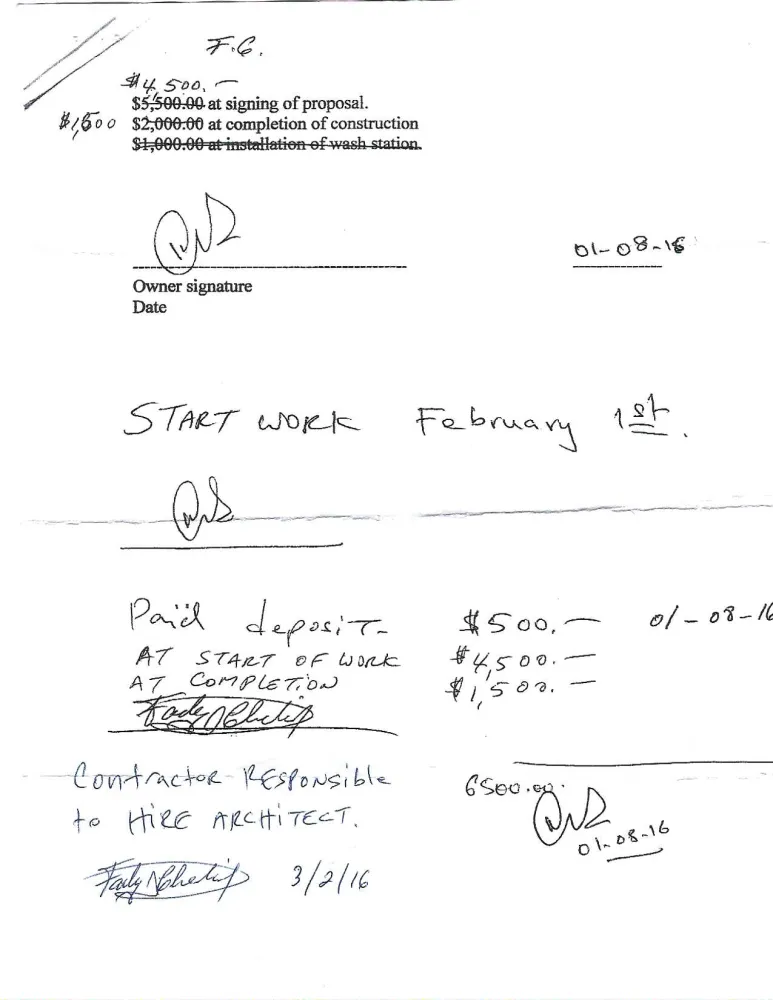 F.G.
$4,500.—
$5,500.00 at signing of proposal.
$1,500 $2,000.00 at completion of construction
$1,000.00 at installation of wash station.
01-08-16
Owner signature
Date
START WORK February 1st.
Paid deposit- $500.— 01-08-16
AT START OF WORK $4,500.—
AT COMPLETION $1,500.—
Contractor Responsible
to HIRE ARCHITECT.
6500.00.
01-08-16
3/2/16